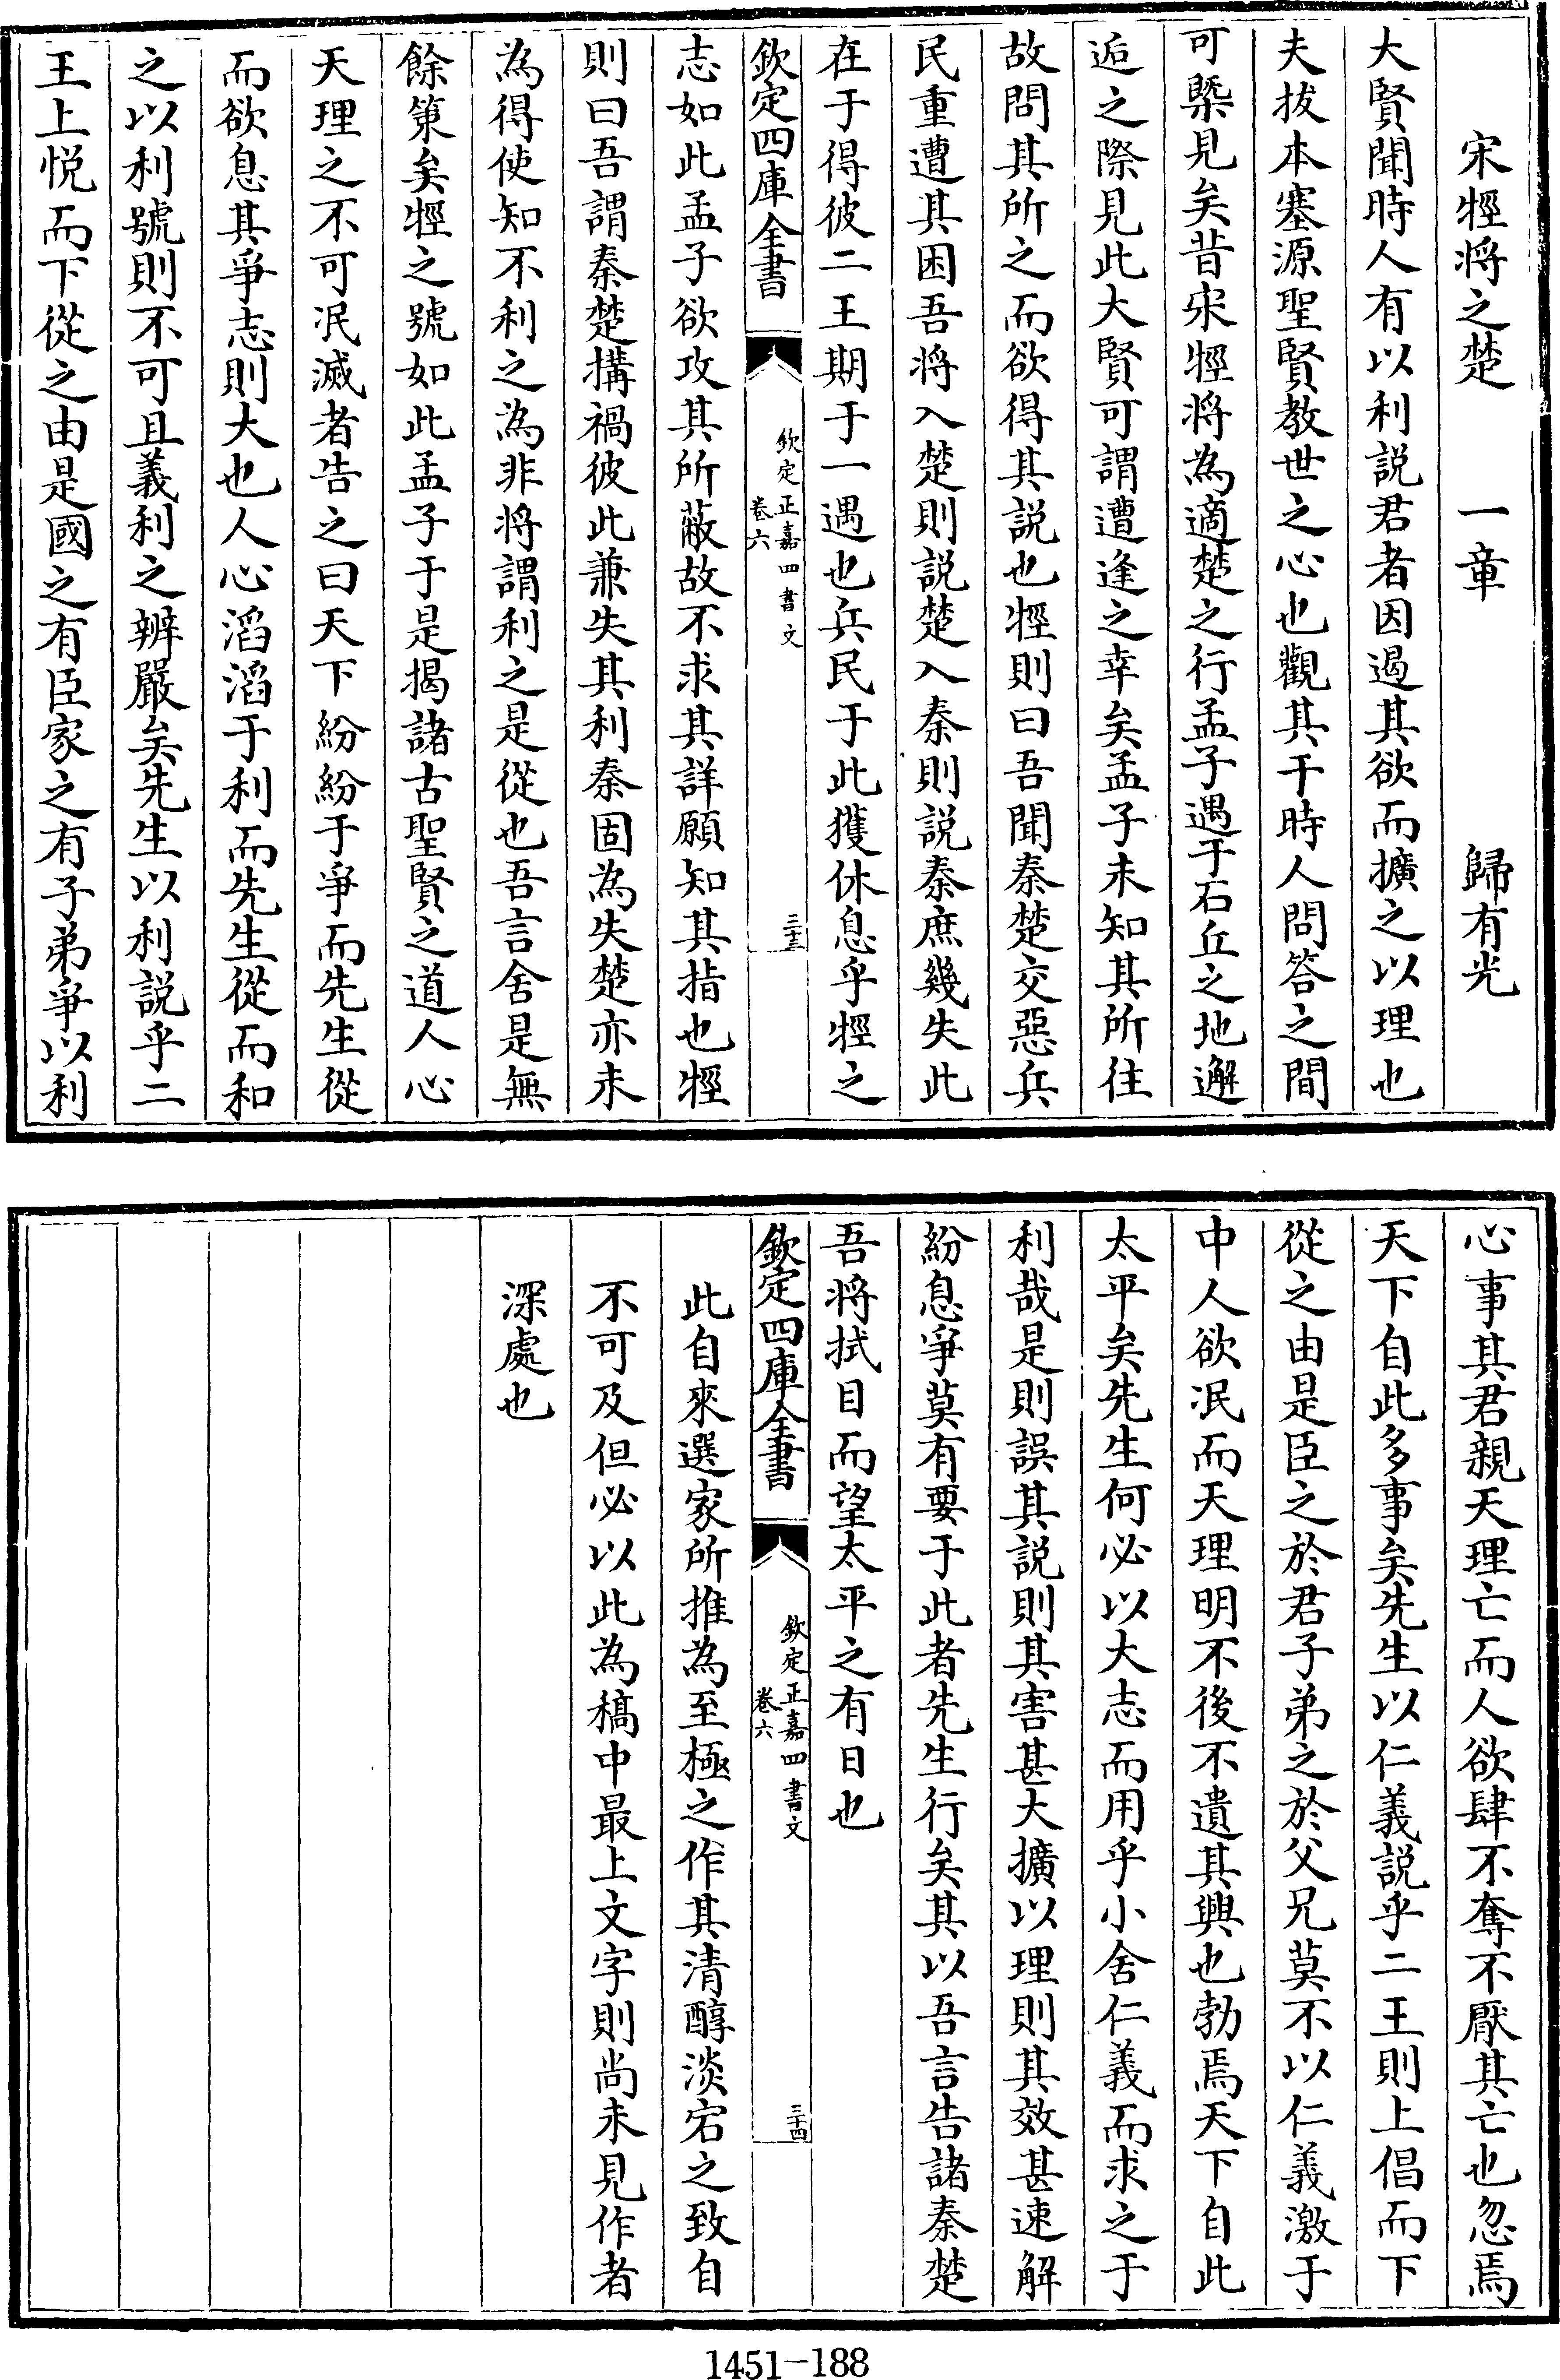 宋牼将之楚　一章　歸有光
大賢聞時人有以利説君者因遏其欲而擴之以理也
夫拔本塞源聖賢教世之心也觀其于時人問答之間
可槩見矣昔宋牼將為適楚之行孟子遇于石丘之地邂
逅之際見此大賢可謂遭逢之幸矣孟子未知其所往
故問其所之而欲得其説也牼則曰吾聞秦楚交惡兵
民重遭其困吾将入楚則説楚入秦則説秦庶幾失此
在于得彼二王期于一遇也兵民于此獲休息乎牼之
欽定四庫全書
欽定正嘉四書文
卷六
三十三
志如此孟子欲攻其所蔽故不求其詳願知其指也牼
則曰吾謂秦楚搆禍彼此兼失其利秦固為失楚亦未
為得使知不利之為非将謂利之是從也吾言舍是無
餘策矣牼之號如此孟子于是揭諸古聖賢之道人心
天理之不可泯滅者告之曰天下紛紛于爭而先生從
而欲息其爭志則大也人心滔滔于利而先生從而和
之以利號則不可且義利之辨嚴矣先生以利説乎二
王上悦而下從之由是國之有臣家之有子弟爭以利
心事其君親天理亡而人欲肆不奪不厭其亡也忽焉
天下自此多事矣先生以仁義説乎二王則上倡而下
從之由是臣之於君子弟之於父兄莫不以仁義激于
中人欲泯而天理明不後不遺其興也勃焉天下自此
太平矣先生何必以大志而用乎小舍仁義而求之于
利哉是則誤其説則其害甚大擴以理則其效甚速解
紛息爭莫有要于此者先生行矣其以吾言告諸秦楚
吾将拭目而望太平之有日也
欽定四庫全書
欽定正嘉四書文
卷六
三十四
此自來選家所推為至極之作其清醇淡宕之致自
不可及但必以此為稿中最上文字則尚未見作者
深處也
1451-188